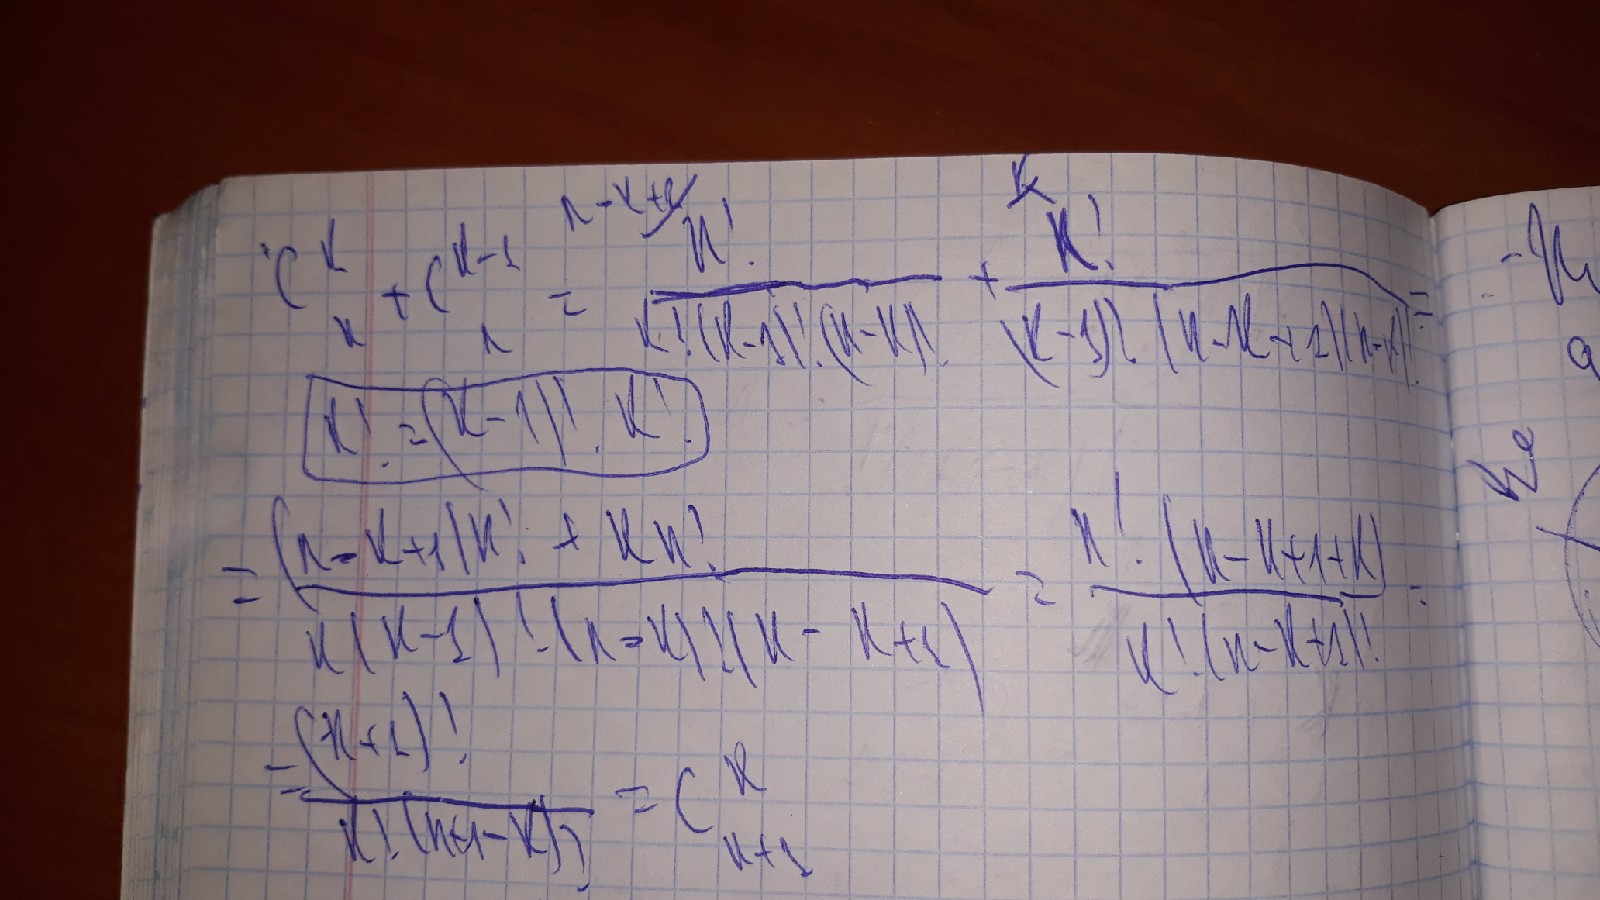 C_n^k + C_n^{k-1} = \frac{n!}{k!(k-1)!·(n-k)!} + \frac{n!}{(k-1)!·(n-k+1)(n-k)!} =
k! = (k-1)!·k!
= \frac{(n-k+1)n! + kn!}{k(k-1)!·(n-k)!(n-k+1)} = \frac{n!·(n-k+1+k)}{k!·(n-k+1)!} =
= \frac{(n+1)!}{k!·(n+1-k)!} = C_{n+1}^k